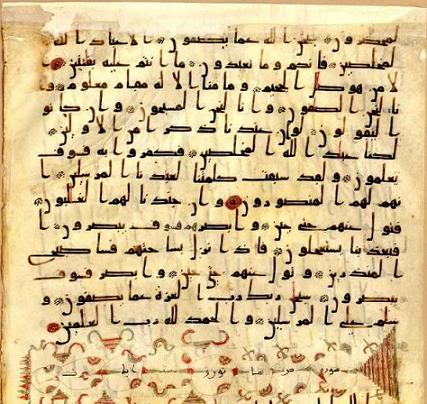 لمحضرون سبحن الله عما يصفون الا عباد الله
المخلصين فانكم وما تعبدون ما انتم عليه بفتنين
الا من هو صال الجحيم وما منا الا له مقام معلوم و
انا لنحن الصافون وانا لنحن المسبحون وان كانو
ا ليقولون لو ان عندنا ذكرا من الاولين
لكنا عباد الله المخلصين فكفروا به فسوف
يعلمون ولقد سبقت كلمتنا لعبادنا المرسلين ا
نهم لهم المنصورون وان جندنا لهم الغلبون
فتول عنهم حتى حين وابصرهم فسوف يبصرون ا
فبعذابنا يستعجلون فاذا نزل بساحتهم فسا صبح
المنذرين وتول عنهم حتى حين وابصر فسوف
يبصرون سبحن ربك رب العزة عما يصفون و
سلم على المرسلين والحمد لله رب العلمين
سورة